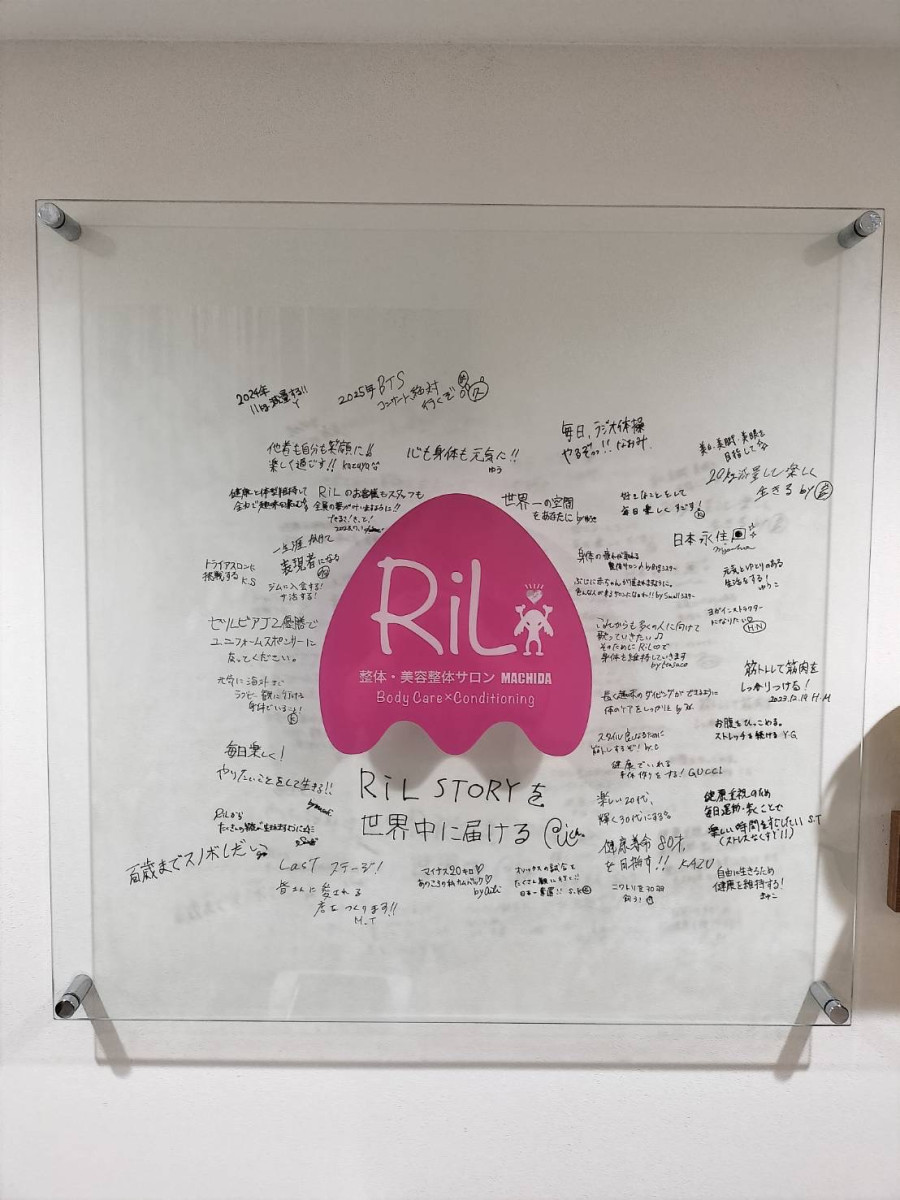 2024年
2025年 BTS
コンサート絶対
行くぞ
毎日、ラジオ体操
やるぞっ!! なおみ
他者も自分も笑顔に!!
楽しく過ごす!!
心も身体も元気に!!
ゆう
美白・美脚・美眼を
目指して
20kg減量して楽しく
生きる by
健康と体型維持して
RiLのお客様もスタッフも
全員の夢が叶いますように!!
世界一の空間
をあなたに
好きなことをして
毎日楽しくすごす!
日本永住
一生涯
表現者になる
トライアスロンに
挑戦する K.S
ジムに入会する!
元気とゆとりのある
生活をする!
ゆうこ
ヨガインストラクター
になりたい H.N
ゼルビアJ2優勝で
ユニフォームスポンサーに
なってください。
これからも多くの人に向けて
歌っていきたい♫
そのためにRiLで
身体を維持していきます
RiL
整体・美容整体サロン MACHIDA
Body Care×Conditioning
元気に海外まで
ラグビー観に行ける
身体でいること!
筋トレして筋肉を
しっかりつける!
2023.12.19 H.M
長く趣味のダイビングができるように
体のケアをしっかりと
お腹をひっこめる。
ストレッチを続ける Y.G
スタイル良くなるために
筋トレするぞ!
毎日楽しく!
やりたいことをして生きる!!
健康でいれる
身体作りをする! GUCCI
RiL STORYを
世界中に届ける
楽しい20代、
輝く30代にする
健康重視のため
毎日運動・歩くことで
楽しい時間をすごしたい S.T
(ストレスなくす!!)
RiLから
たくさんの
百歳までスノボしたい
健康寿命 80才、
を目指す!! KAZU
Last ステージ!
皆さんに愛される
店をつくります!!
M.T
マイナス20キロ♡
あのころの私カムバック♡
オリックスの試合を
たくさん観に行く!!
日本一奪還!!
ニワトリを30羽
飼う!
自由に生きるため
健康を維持する!